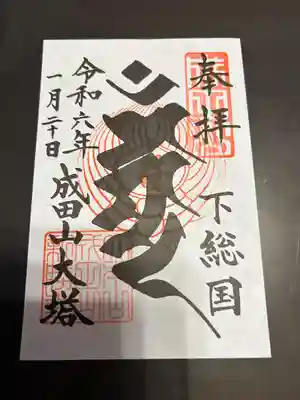 奉拝
下総国
令和六年
一月二十日
成田山大塔